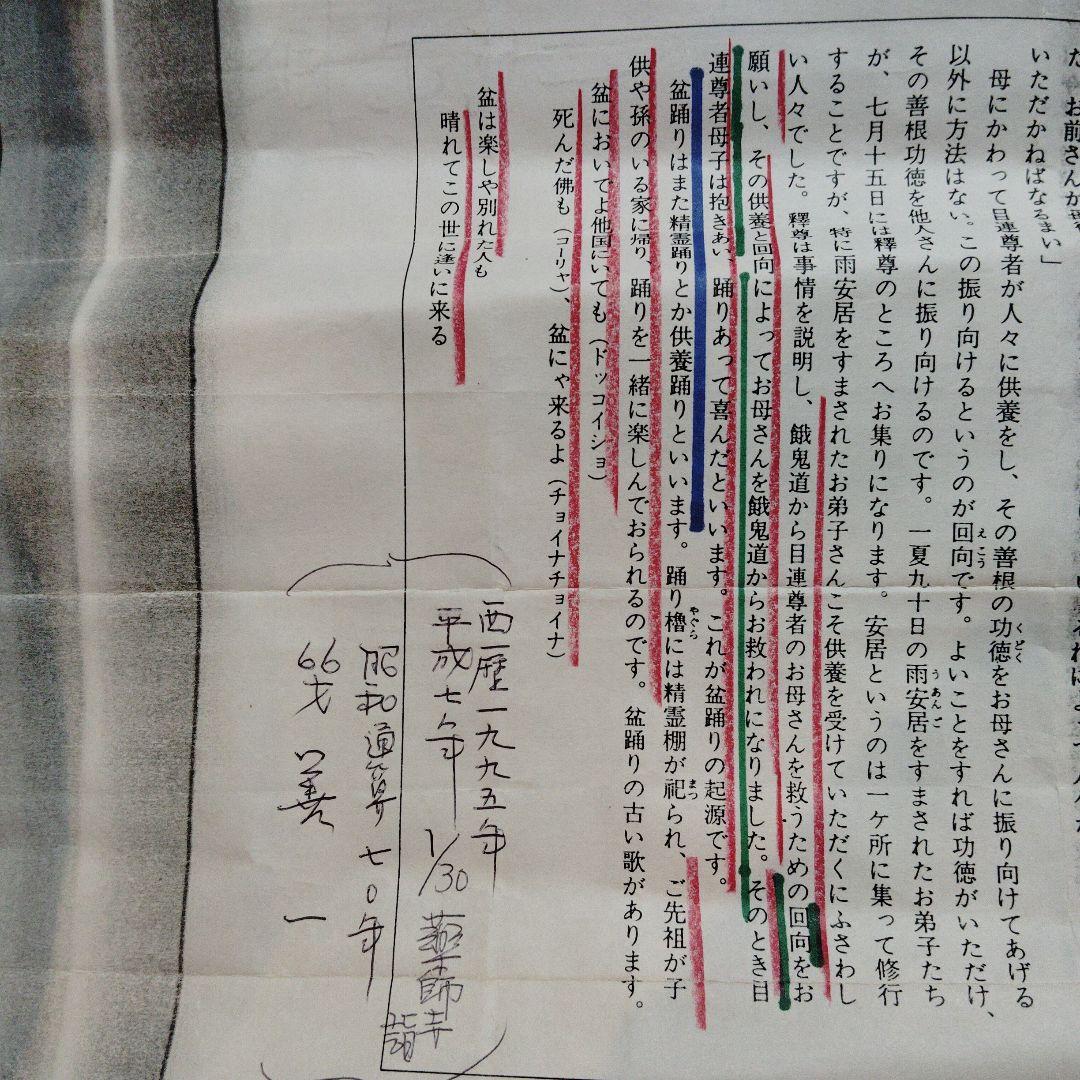 お前さんが
いただかねばなるまい」
母にかわって目連尊者が人々に供養をし、その善根の功徳をお母さんに振り向けてあげる
くどく
以外に方法はない。この振り向けるというのが回向です。よいことをすれば功徳がいただけ、
えこう
その善根功徳を他人さんに振り向けるのです。一夏九十日の雨安居をすまされたお弟子たち
うあんご
が、七月十五日には釋尊のところへお集りになります。安居というのは一ケ所に集って修行
することですが、特に雨安居をすまされたお弟子さんこそ供養を受けていただくにふさわし
い人々でした。釋尊は事情を説明し、餓鬼道から目連尊者のお母さんを救うための回向をお
願いし、その供養と回向によってお母さんを餓鬼道からお救われになりました。そのとき目
連尊者母子は抱きあい、踊りあって喜んだといいます。これが盆踊りの起源です。
盆踊りはまた精霊踊りとか供養踊りといいます。踊り櫓には精霊棚が祀られ、ご先祖が子
やぐら
まつ
供や孫のいる家に帰り、踊りを一緒に楽しんでおられるのです。盆踊りの古い歌があります。
盆においでよ他国にいても（ドッコイショ）
死んだ佛も（コーリャ）、盆にゃ来るよ（チョイナチョイナ）
盆は楽しや別れた人も
晴れてこの世に逢いに来る
西歴一九九五年
平成七年 1/30 薬師寺
詣
昭和通算七〇年
66才 善一